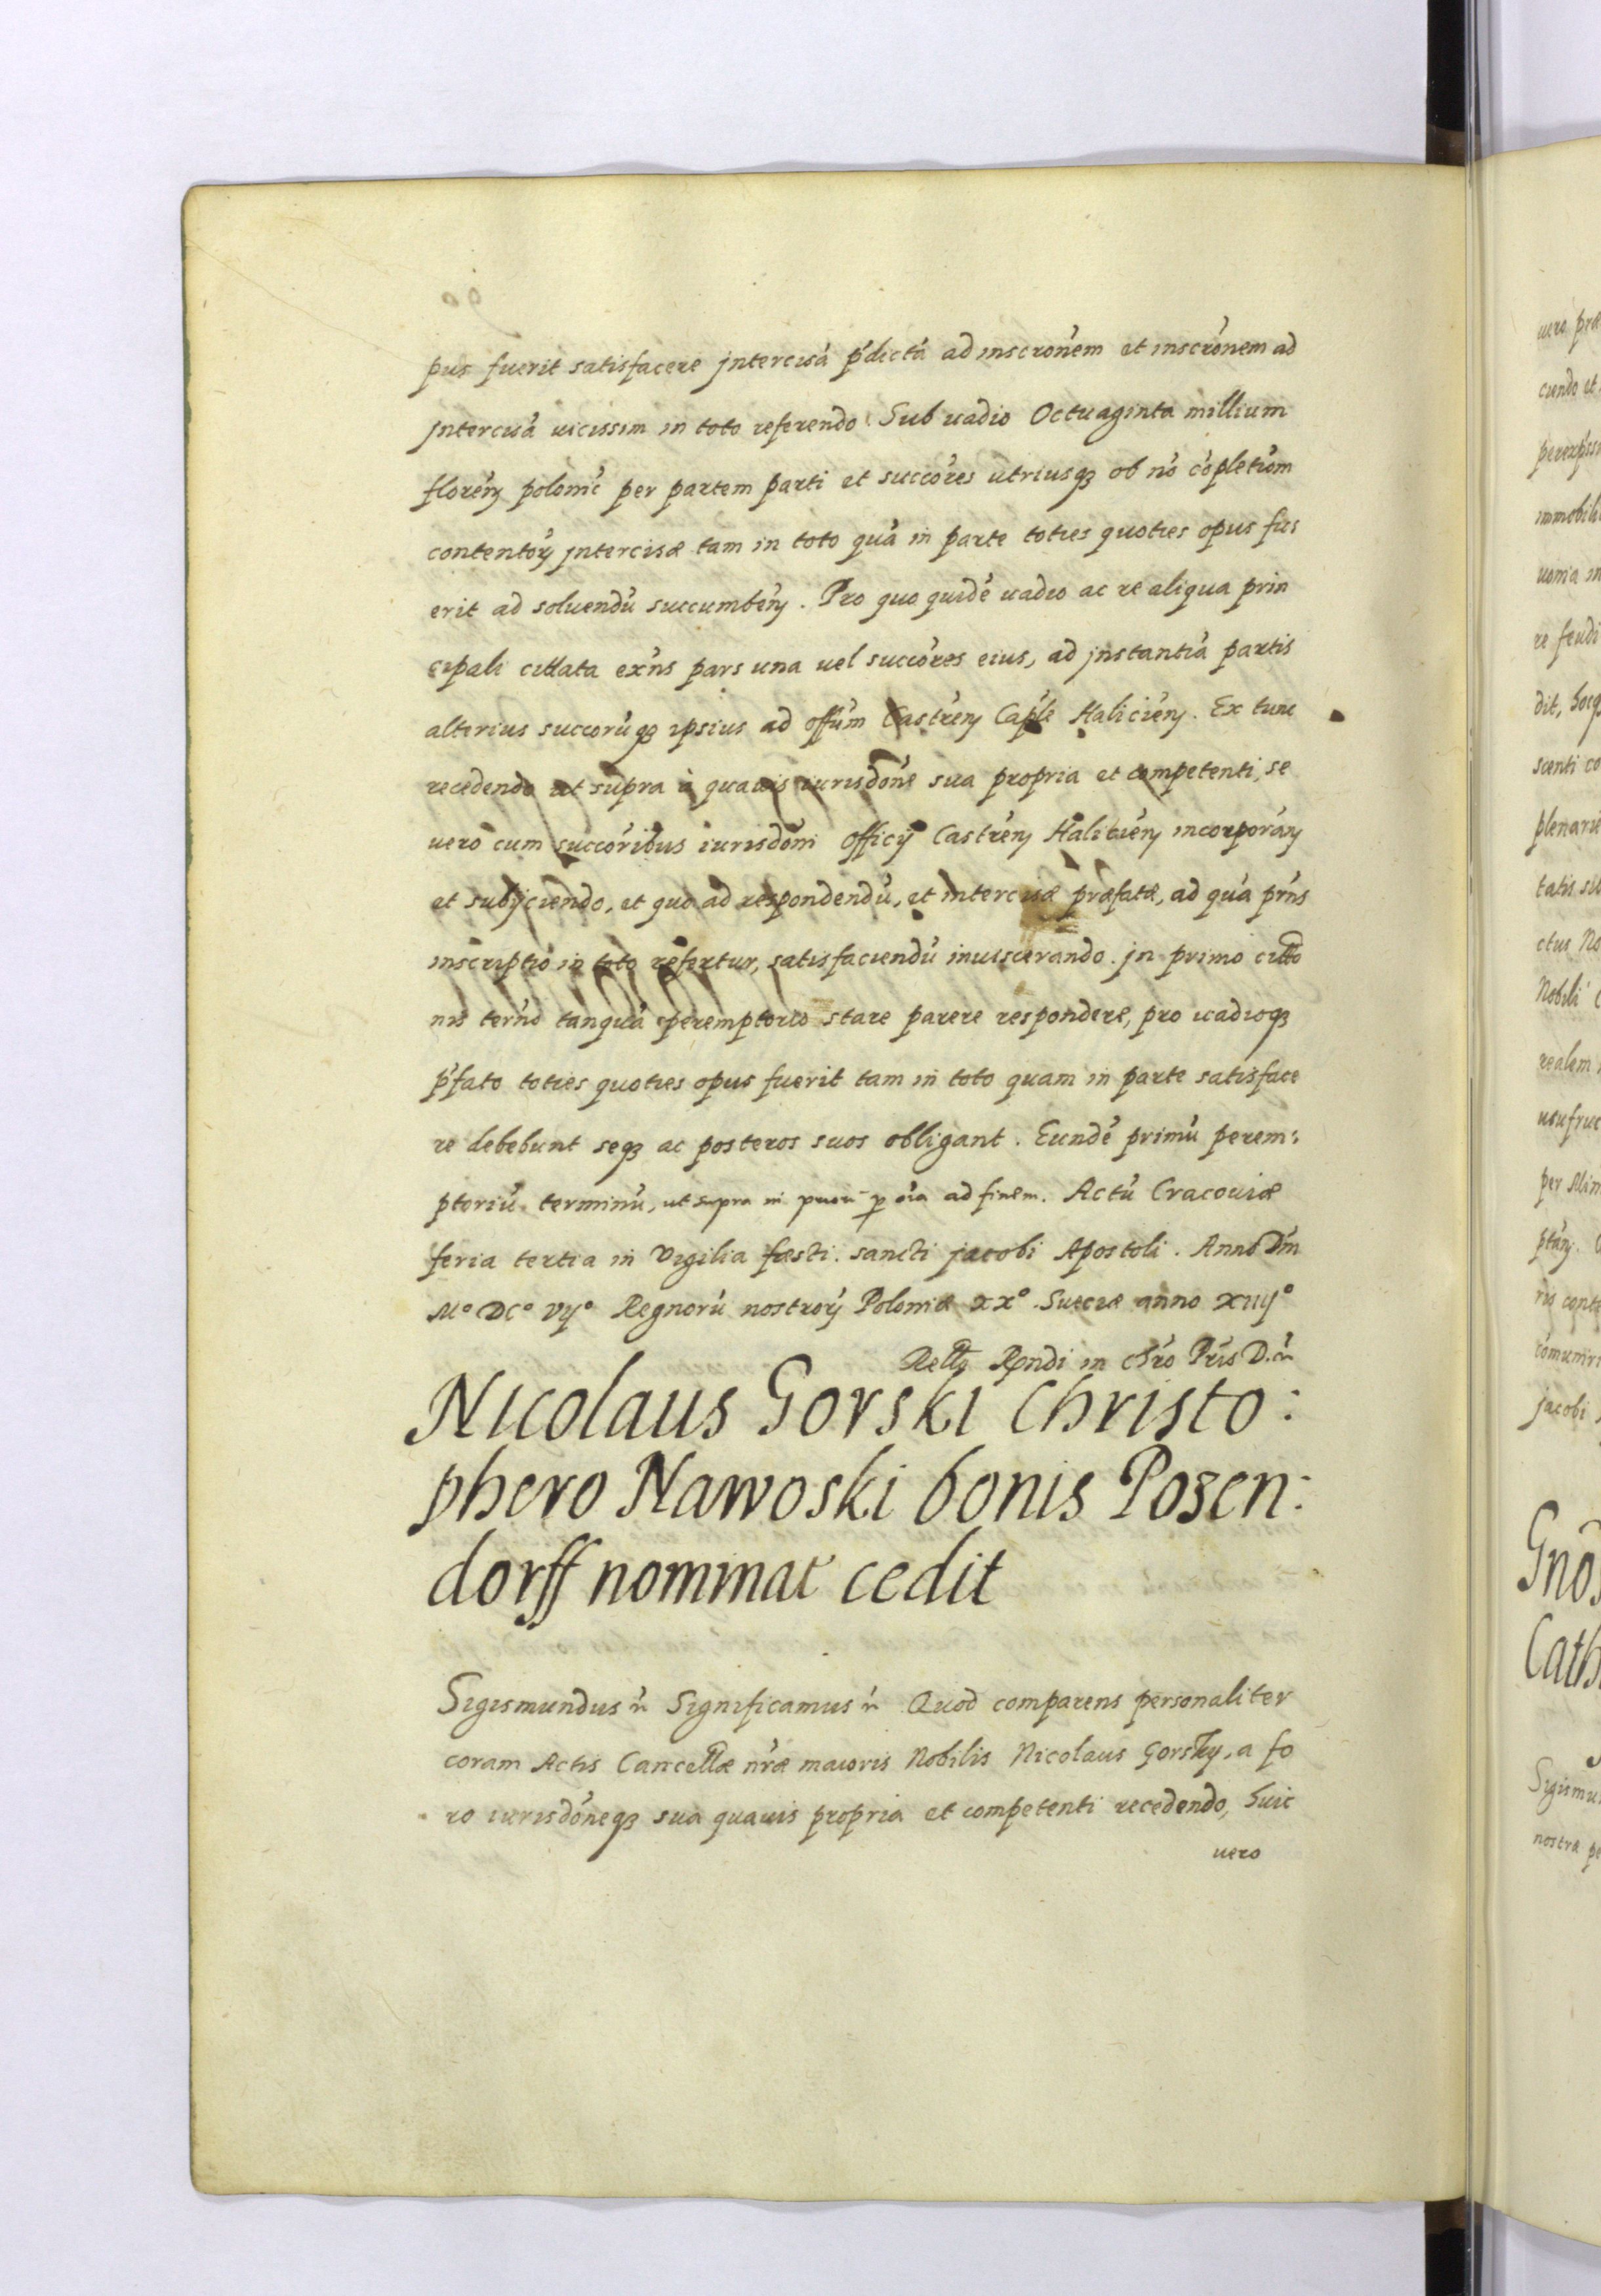 pus fuerit satisfacere jntercisá p'dictá ad inscrone'm et inscro'nem ad
jntercisá uicissim in toto referendo Sub uadio Octuaginta millium
florén polonić per partem parti et succóres utriusqʒ ob nó cópletióm
contentorʒ jntercisæ tam in toto quá in parte toties quoties opus fu
erit ad soluendú succumbén. Pro quo quidé uadio ac re aliqua prin
cipali cittata exńs pars una uel succóres eius, ad jnstantiá partis
alterius succorúqʒ ipsius ad offúm Castrén Cap'le Halicién. Ex tunc
recedendo ut supra à quauis iurisdóne sua propria et competenti, se
uero cum succóribus iurisdóni Officij Castrén Halicién incorporán
et subijciendo, et quo ad respondendú, et intercisæ præfatæ, ad quá prńs
inscriptió in toto refertur, satisfaciendú inuiscerando. jn primo citto
nis terńo tanquá peremptorio stare parere respondere, pro uadioqʒ
p'fato toties quoties opus fuerit tam in toto quam in parte satisface
re debebunt seqʒ ac posteros suos obligant. Eundé primú perem:
ptoriú terminú, ut supra in priori p óia ad finem. Actú Cracouiæ
feria tertia in Vigilia fæsti. sancti jacobi Apostoli. Anno Dńi
Mº DCº Vijº Regnorú nostrorʒ Poloniæ xxº. Sueciæ anno xiiijº
Rellõ Rndi in chŕo Pŕis D. ŕc
Nicolaus Gorski Christo:
phero Nawoski bonis Pozen:
dorff nominat cedit
Sigismundus ŕc Significamus ŕc Quod comparens personaliter
coram Actis Cancellæ nŕæ maioris Nobilis Nicolaus Gorsky, a fo
ro iurisdóneqʒ sua quauis propria et competenti recedendo, huic
uero